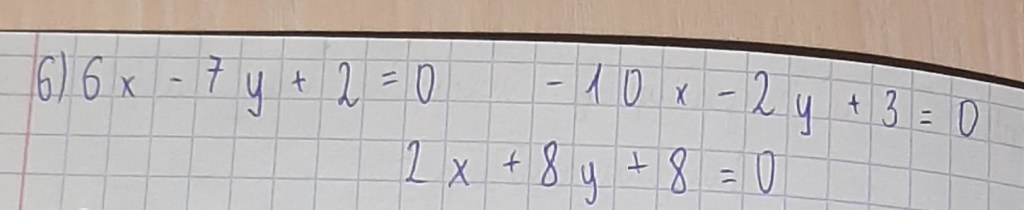 6) 6x - 7y + 2 = 0 -10x - 2y + 3 = 0
2x + 8y + 8 = 0